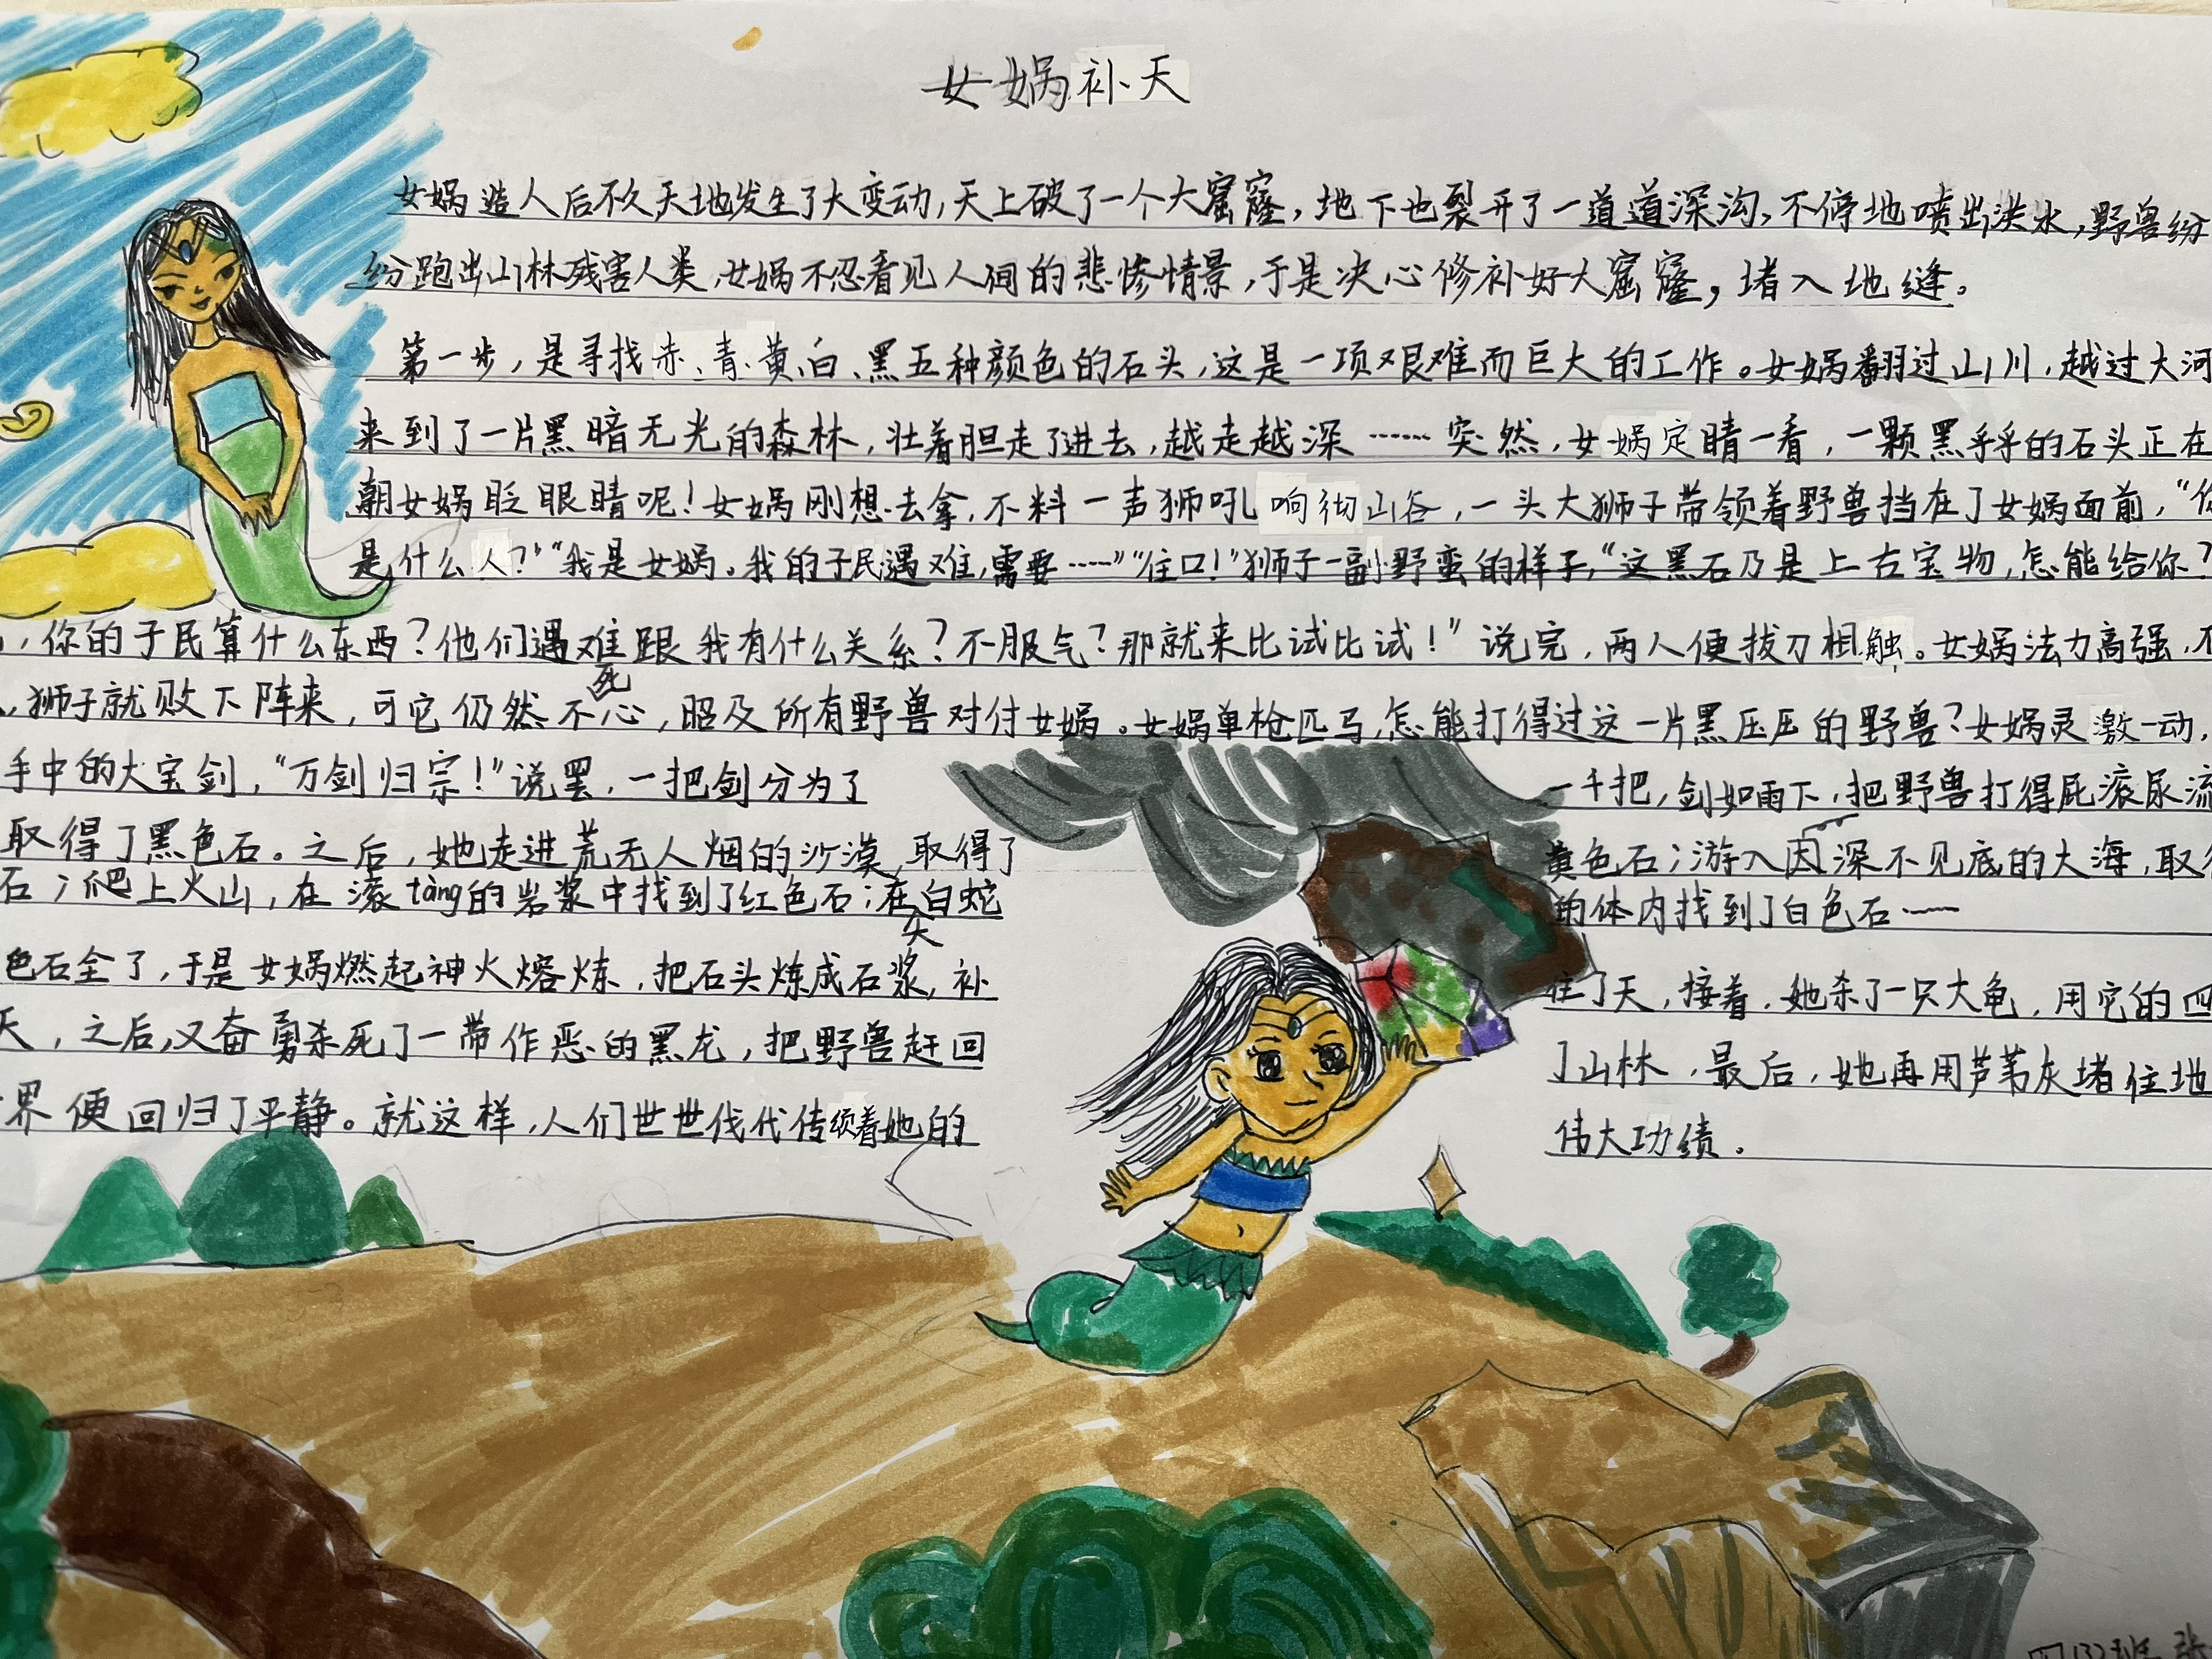 女娲补天
女娲造人后不久天地发生了大变动,天上破了一个大窟窿,地下也裂开了一道道深沟,不停地喷出洪水,野兽纷
纷跑出山林残害人类,女娲不忍看见人间的悲惨情景,于是决心修补好大窟窿,堵入地缝。
第一步,是寻找赤、青、黄、白、黑五种颜色的石头,这是一项艰难而巨大的工作。女娲翻过山川,越过大河
来到了一片黑暗无光的森林,壮着胆走了进去,越走越深……突然,女娲定睛一看,一颗黑乎乎的石头正在
朝女娲眨眼睛呢!女娲刚想去拿,不料一声狮吼响彻山谷,一头大狮子带领着野兽挡在了女娲面前,“你
是什么人?”“我是女娲。我的子民遇难,需要……”“住口!”狮子一副野蛮的样子,“这黑石乃是上古宝物,怎能给你?
,你的子民算什么东西?他们遇难跟我有什么关系?不服气?那就来比试比试!”说完,两人便拔刀相触。女娲法力高强,不
,狮子就败下阵来,可它仍然不死心,昭及所有野兽对付女娲。女娲单枪匹马,怎能打得过这一片黑压压的野兽?女娲灵激一动,
手中的大宝剑,“万剑归宗!”说罢,一把剑分为了一千把,剑如雨下,把野兽打得屁滚尿流
取得了黑色石。之后,她走进荒无人烟的沙漠,取得了黄色石;游入因深不见底的大海,取得
石;爬上火山,在滚tàng的岩浆中找到了红色石;在白蛇的体内找到了白色石……
色石全了,于是女娲燃起神火熔炼,把石头炼成石浆,补住了天,接着,她杀了一只大龟,用它的四
天,之后,又奋勇杀死了一带作恶的黑龙,把野兽赶回了山林,最后,她再用芦苇灰堵住地
界便回归了平静。就这样,人们世世代代传颂着她的伟大功绩。
四(3)班 张